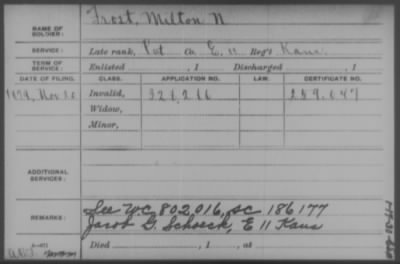 Frost, Milton N
NAME OF SOLDIER:
SERVICE: Late rank, Pvt Co. E, 11 Reg't Kans
TERM OF SERVICE: Enlisted , 1 Discharged , 1
DATE OF FILING. CLASS. APPLICATION NO. LAW. CERTIFICATE NO.
1879, Nov Invalid,
Widow,
Minor,
ADDITIONAL SERVICES:
See WC 802016, SC 186177
REMARKS: Jacob G. E 11 Kans
Died , 1 , at